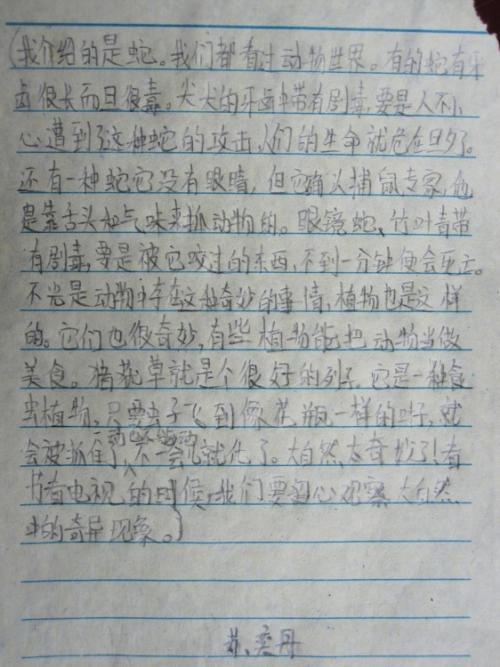 (我介绍的是蛇。我们都看过动物世界。有的蛇有牙
齿很长而且很毒。尖尖的牙齿中带有剧毒,要是人不小
心遭到了这种蛇的攻击,人们的生命就危在旦夕了。
还有一种蛇它没有眼睛,但它确认捕鼠专家,他
是靠舌头和气味来抓动物的。眼镜蛇、竹叶青带
有剧毒,要是被它咬过的东西,不到一分钟便会死亡。
不光是动物中存在这种奇妙的事情,植物也是这样
的。它们也很奇妙,有些植物能把动物当做
美食。猪笼草就是个很好的列子,它是一种食
虫植物,只要虫子飞到像花瓶一样的叶子,就
会被抓住了,不一会儿就化了。大自然太奇妙了看
书看电视的时候,我们要留心观察大自然
中的奇异现象。)
苏奕丹